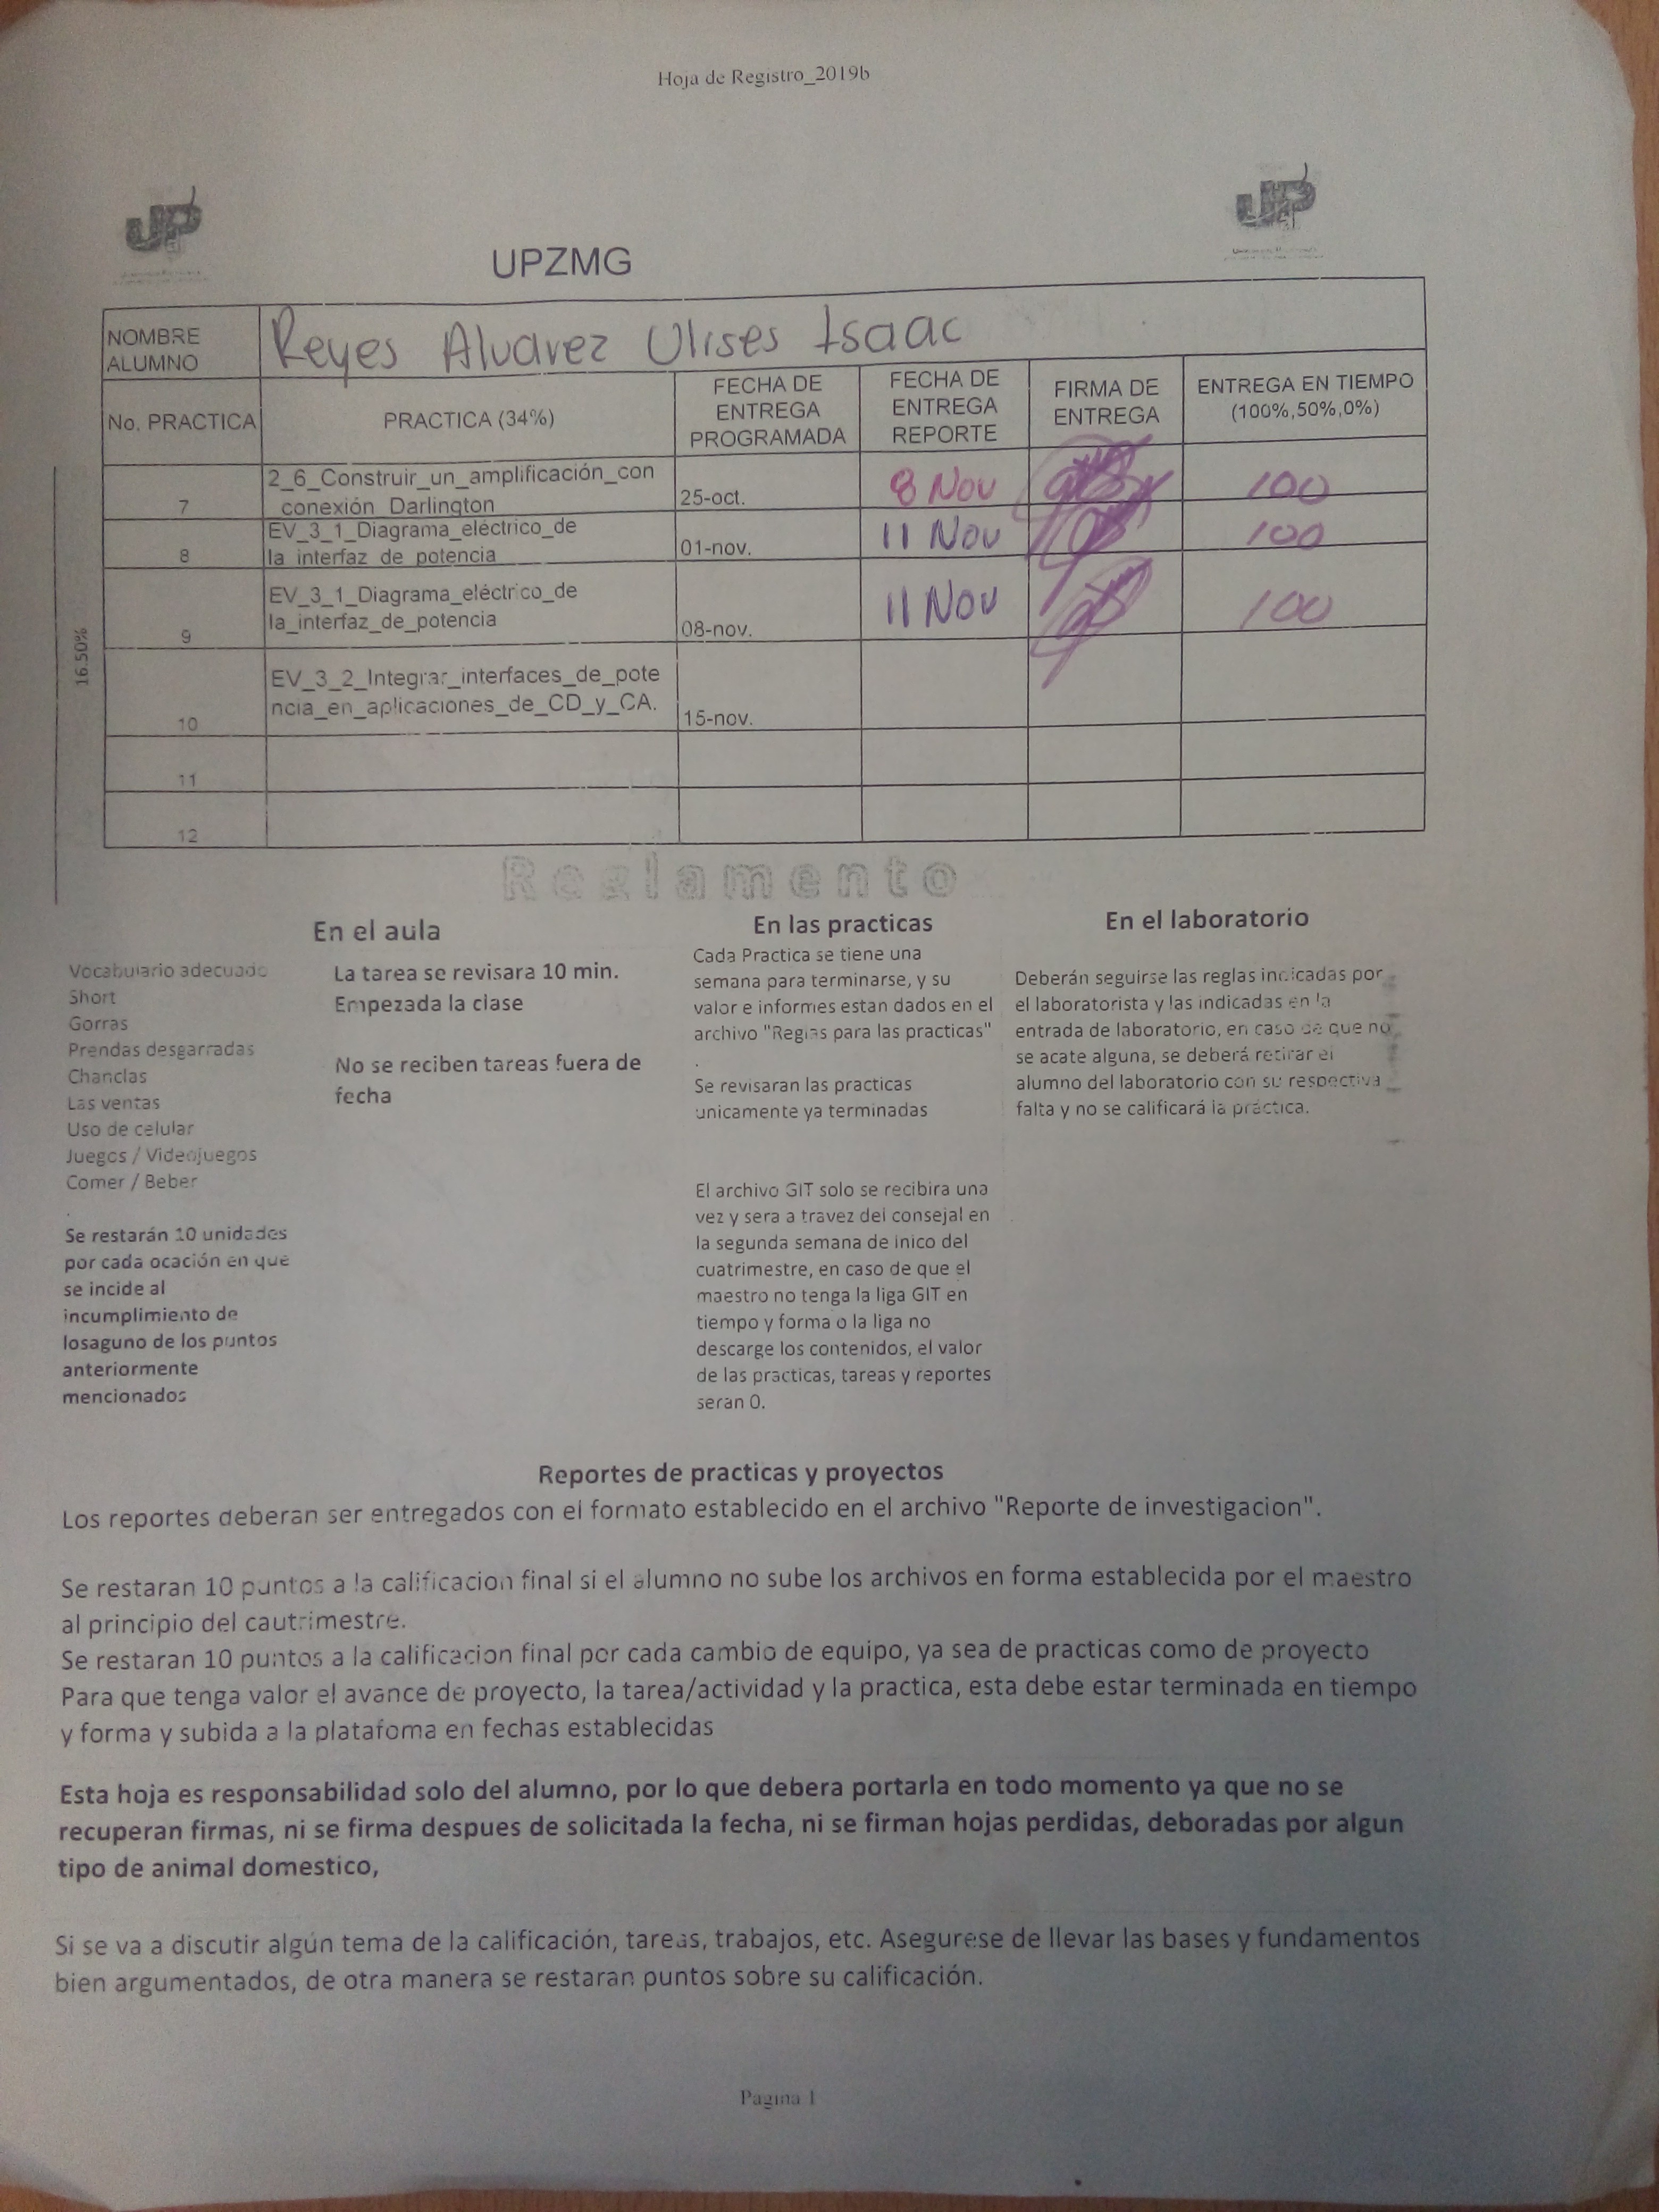 Hoja de Registro_2019b
UP
UP
UPZMG
NOMBRE
ALUMNO
Reyes Alvarez Ulises Isaac
No. PRACTICA
PRACTICA (34%)
FECHA DE
ENTREGA
PROGRAMADA
FECHA DE
ENTREGA
REPORTE
FIRMA DE
ENTREGA
ENTREGA EN TIEMPO
(100%,50%,0%)
16.50%
7
2_6_Construir_un_amplificación_con
_conexión_Darlington
25-oct.
8 Nov
100
8
EV_3_1_Diagrama_eléctrico_de
la_interfaz_de_potencia
01-nov.
11 Nov
100
9
EV_3_1_Diagrama_eléctrico_de
la_interfaz_de_potencia
08-nov.
11 Nov
100
10
EV_3_2_Integrar_interfaces_de_pote
ncia_en_aplicaciones_de_CD_y_CA.
15-nov.
11
12
Reglamento
En el aula
Vocabulario adecuado
Short
Gorras
Prendas desgarradas
Chanclas
Las ventas
Uso de celular
Juegos / Videojuegos
Comer / Beber
.
Se restarán 10 unidades
por cada ocación en que
se incide al
incumplimiento de
losaguno de los puntos
anteriormente
mencionados
La tarea se revisara 10 min.
Empezada la clase
No se reciben tareas fuera de
fecha
En las practicas
Cada Practica se tiene una
semana para terminarse, y su
valor e informes estan dados en el
archivo "Reglas para las practicas"
.
Se revisaran las practicas
unicamente ya terminadas
El archivo GIT solo se recibira una
vez y sera a travez del consejal en
la segunda semana de inico del
cuatrimestre, en caso de que el
maestro no tenga la liga GIT en
tiempo y forma o la liga no
descarge los contenidos, el valor
de las practicas, tareas y reportes
seran 0.
En el laboratorio
Deberán seguirse las reglas indicadas por
el laboratorista y las indicadas en la
entrada de laboratorio, en caso de que no
se acate alguna, se deberá retirar el
alumno del laboratorio con su respectiva
falta y no se calificará la práctica.
Reportes de practicas y proyectos
Los reportes deberan ser entregados con el formato establecido en el archivo "Reporte de investigacion".
Se restaran 10 puntos a la calificacion final si el alumno no sube los archivos en forma establecida por el maestro
al principio del cautrimestre.
Se restaran 10 puntos a la calificacion final por cada cambio de equipo, ya sea de practicas como de proyecto
Para que tenga valor el avance de proyecto, la tarea/actividad y la practica, esta debe estar terminada en tiempo
y forma y subida a la platafoma en fechas establecidas
Esta hoja es responsabilidad solo del alumno, por lo que debera portarla en todo momento ya que no se
recuperan firmas, ni se firma despues de solicitada la fecha, ni se firman hojas perdidas, deboradas por algun
tipo de animal domestico,
Si se va a discutir algún tema de la calificación, tareas, trabajos, etc. Asegurese de llevar las bases y fundamentos
bien argumentados, de otra manera se restaran puntos sobre su calificación.
Pagina 1